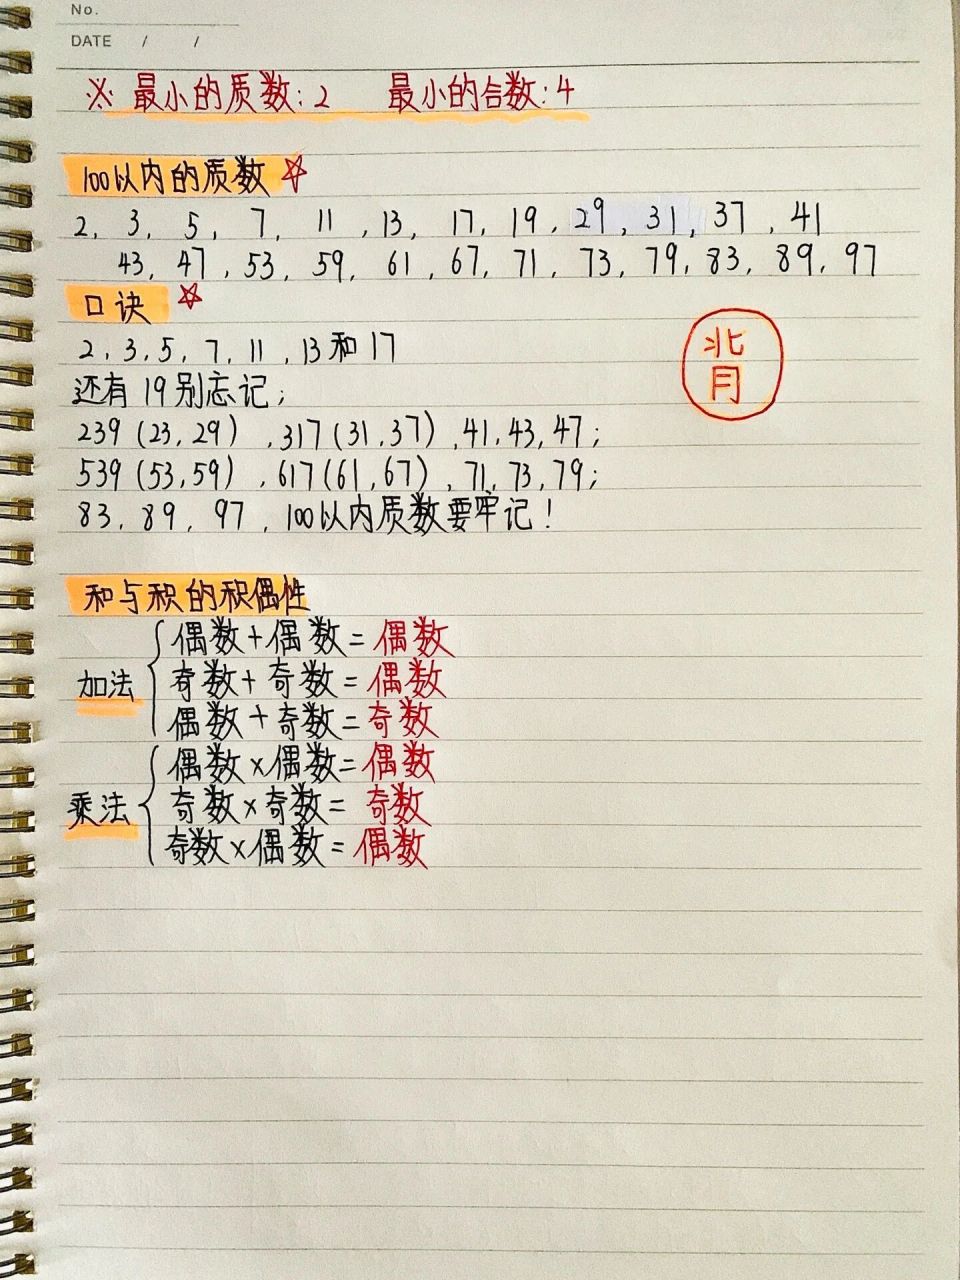 No.
DATE / /
※ 最小的质数:2 最小的合数:4
100以内的质数☆
2, 3, 5, 7, 11, 13, 17, 19, 29, 31, 37, 41
43, 47, 53, 59, 61, 67, 71, 73, 79, 83, 89, 97
口诀 ☆
2, 3, 5, 7, 11, 13和17
还有19别忘记;
239(23,29),317(31,37),41,43,47;
539(53,59),617(61,67),71,73,79;
83,89,97,100以内质数要牢记!
背
和与积的积偶性
偶数+偶数=偶数
加法 奇数+奇数=偶数
偶数+奇数=奇数
偶数×偶数=偶数
乘法 奇数×奇数=奇数
奇数×偶数=偶数